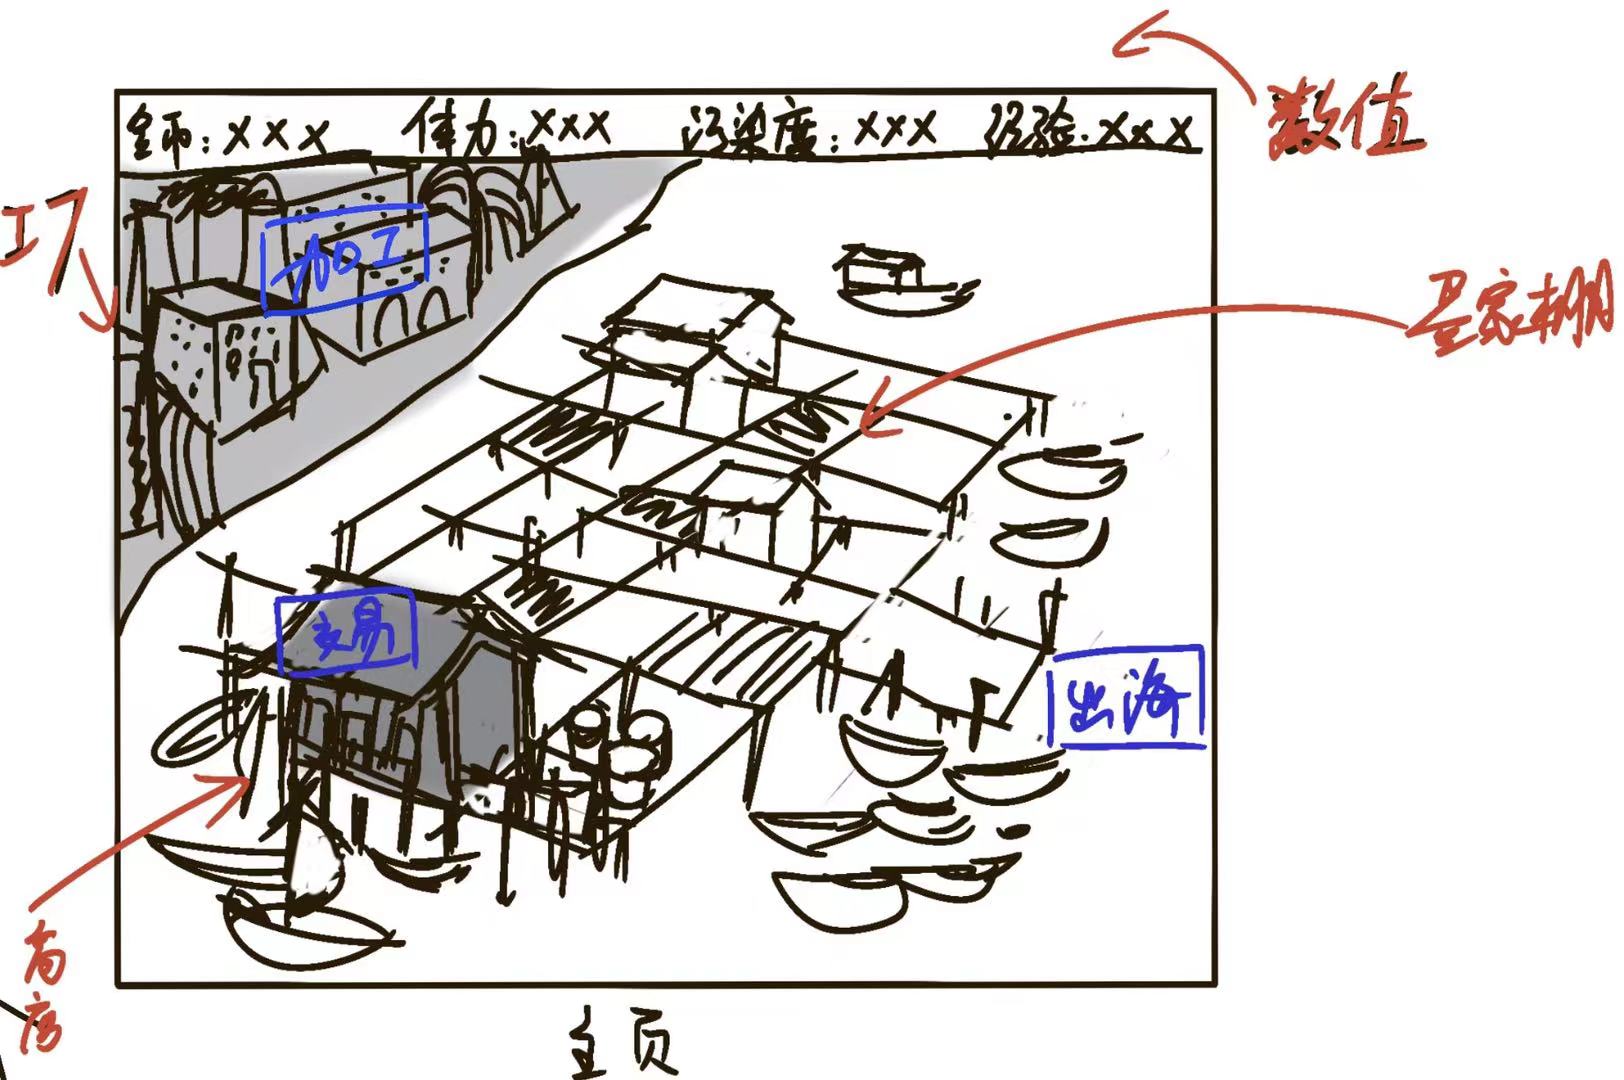 金币：XXX 体力：XXX 污染度：XXX 经验：XXX
数值
工厂
加工
蛋家棚
交易
出海
商店
主页